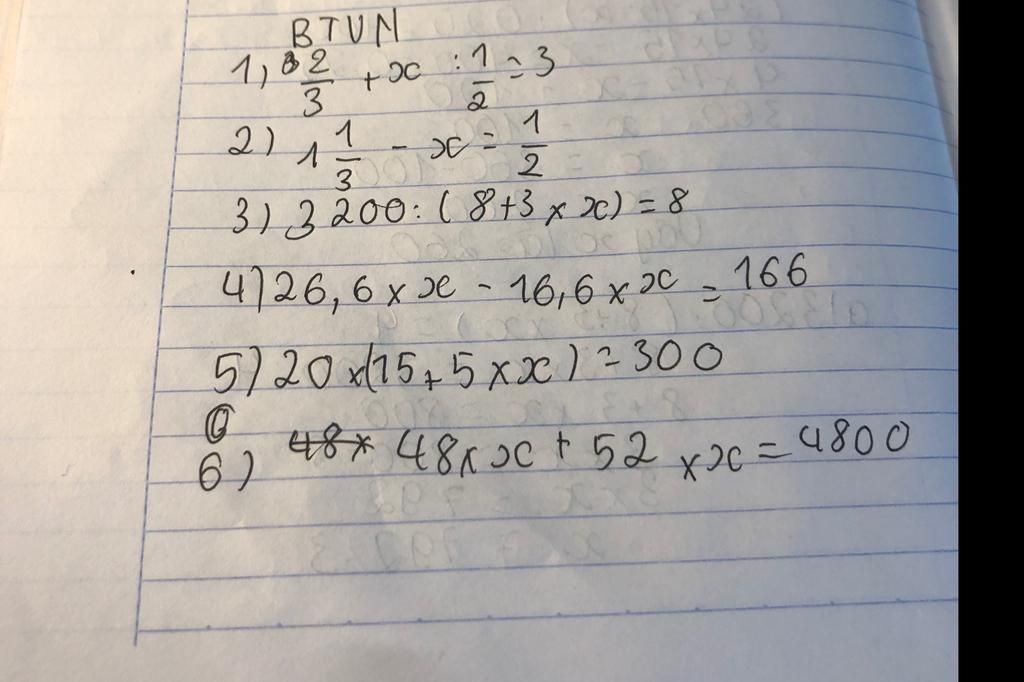 BTVN
1, 2/3 + x : 1/2 = 3
2) 1 1/3 - x = 1/2
3) 3200 : ( 8+3 × x) = 8
4) 26,6 × x - 16,6 × x = 166
5) 20 × (15 + 5 × x) = 300
6) 48 × x + 52 × x = 4800